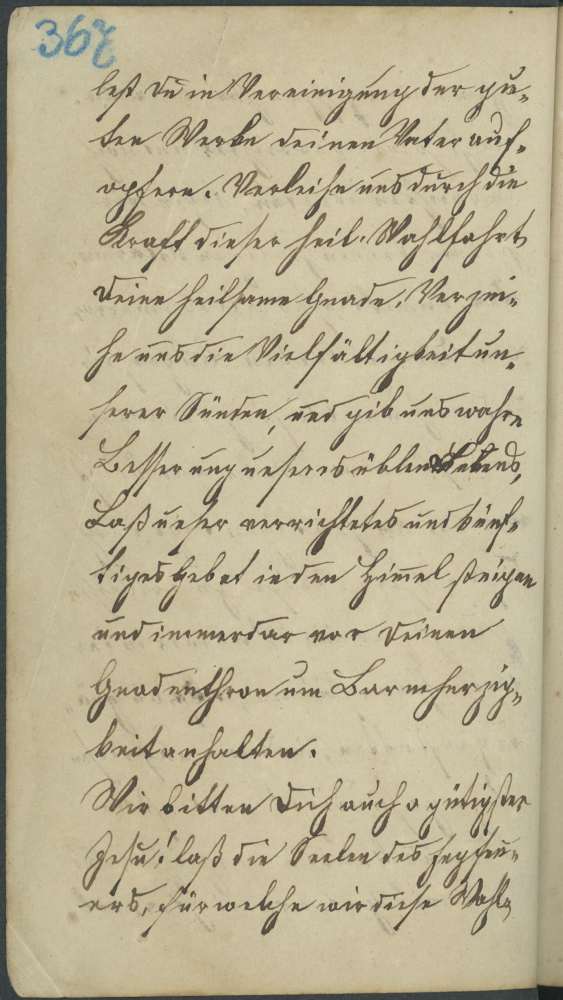 367
lest Du in Vereinigung der gu-
ten Werke deinen Vater auf-
opfern. Verleihe uns durch die
Kraft dieser heil. Wahlfahrt
deine heilsame Gnade. Verzei-
he uns die Vielfältigkeit un-
serer Sünden, und gib uns wahre
Besserung unseres üblen Lebens,
Laß unser verrichtetes und künf-
tiges Gebet in den Himmel steigen
und immerdar vor Deinen
Gnadenthron um Barmherzig-
keit anhalten.
Wir bitten Dich auch o gütigster
Jesu! laß die Seelen des Fegfeu-
ers, für welche wir diese Wahl-